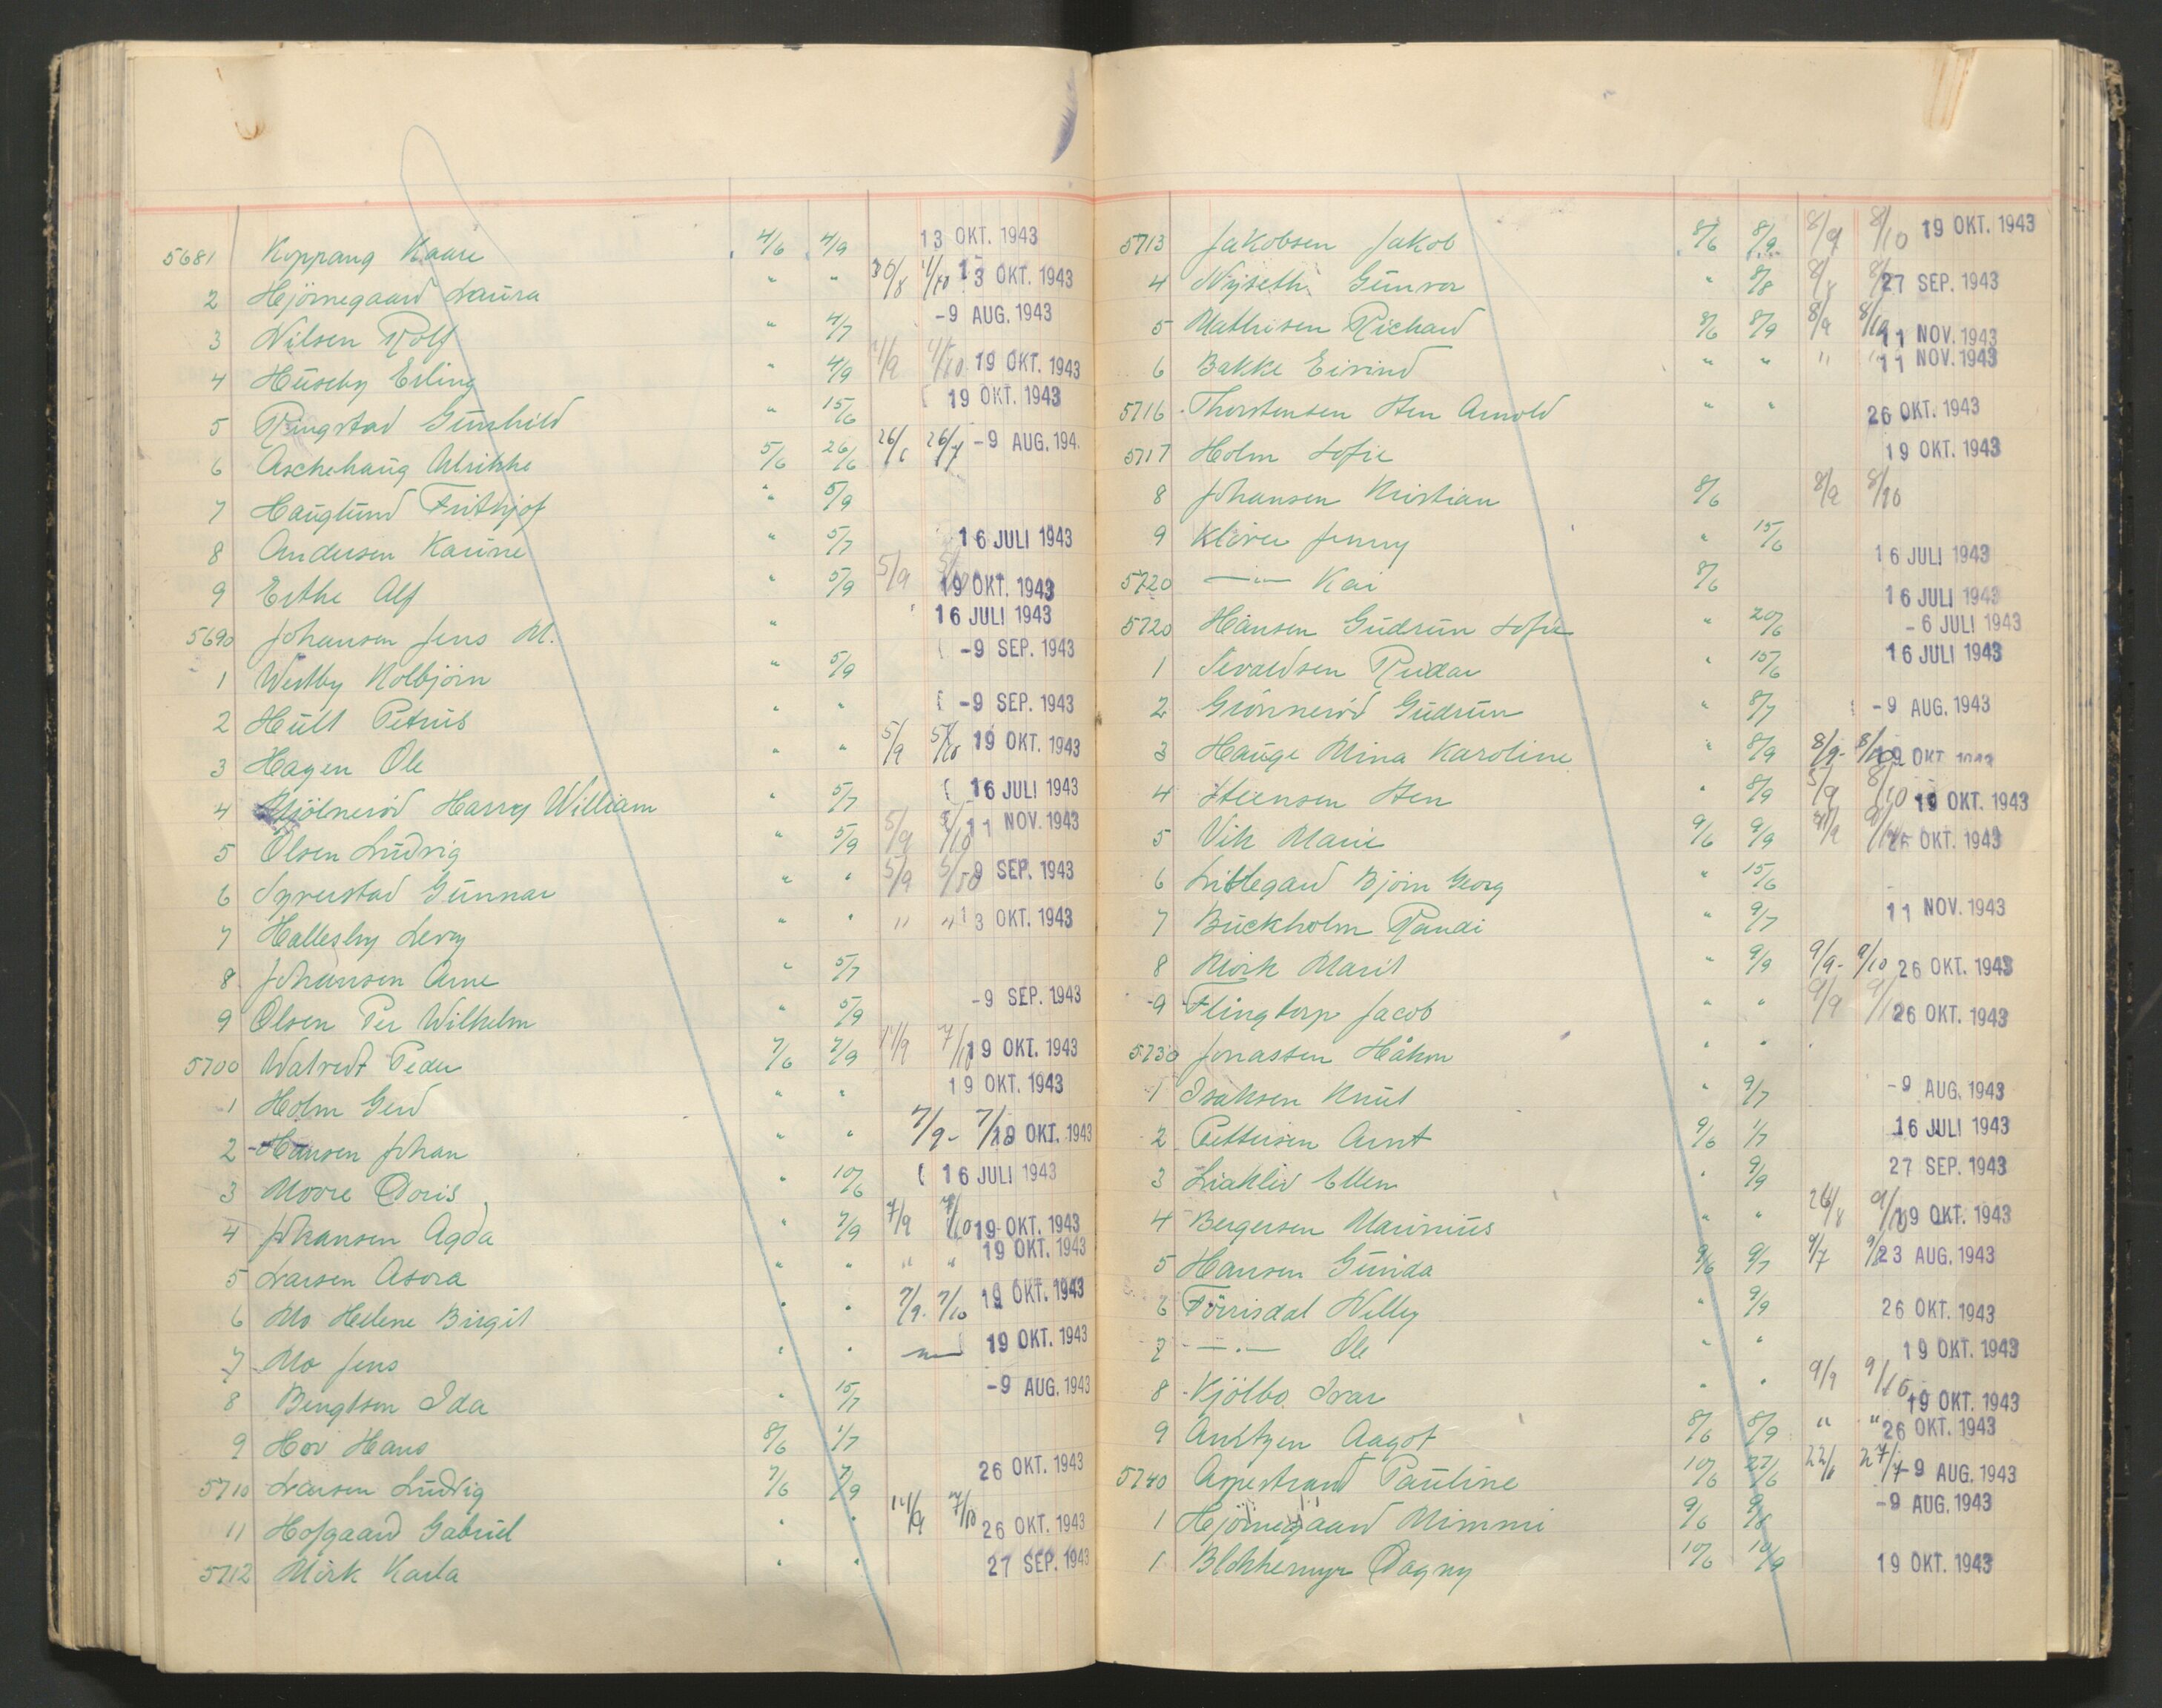 5681 Koppang Kaare 4/6 4/9 13 OKT. 1943
2 Hjörnegaard Laura " " 30/8 4/10 13 OKT. 1943
3 Nilsen Rolf " 4/7 -9 AUG. 1943
4 Huseby Erling " 4/9 4/9 4/10 19 OKT. 1943
5 Ringstad Gunhild " 15/6 19 OKT. 1943
6 Aschehaug Ulrikke 5/6 26/6 26/6 26/7 -9 AUG. 194
7 Hauglund Frithjof " 5/9
8 Andersen Karine " 5/7 16 JULI 1943
9 Erthe Alf " 5/9 5/9 5/10 19 OKT. 1943
5690 Johansen Jens M. " 16 JULI 1943
1 Westby Kolbjörn " 5/9 -9 SEP. 1943
2 Hult Petrus " " -9 SEP. 1943
3 Hagen Ole " " 5/9 5/10 19 OKT. 1943
4 Mjölneröd Harry William " 5/7 16 JULI 1943
5 Olsen Ludvig " 5/9 5/9 5/10 11 NOV. 1943
6 Syverstad Gunnar " " 5/9 5/10 9 SEP. 1943
7 Hallesby Levy " " " " 13 OKT. 1943
8 Johansen Arne " 5/7
9 Olsen Per Wilhelm " 5/9 -9 SEP. 1943
5700 Peder 7/6 7/9 7/9 7/10 19 OKT. 1943
1 Holm Gerd " " 19 OKT. 1943
2 Hansen Johan " " 7/9- 7/10 19 OKT. 1943
3 Moore Doris " 10/6 16 JULI 1943
4 Johansen Agda " 7/9 7/9 7/10 19 OKT. 1943
5 Larsen Asora " " " " 19 OKT. 1943
6 Mo Helene Birgit " " 7/9. 7/10 19 OKT. 1943
7 Mo Jens " " —"— 19 OKT. 1943
8 Bengtson Ida " 15/7 -9 AUG. 1943
9 Hov Hans 8/6 1/7
5710 Larsen Ludvig 7/6 7/9 26 OKT. 1943
11 Hofgaard Gabriel " " 7/9 7/10 26 OKT. 1943
5712 Mörk Karla " " 27 SEP. 1943
5713 Jakobsen Jakob 8/6 8/9 8/9 8/10 19 OKT. 1943
4 Nyseth Gunvor " 8/8 27 SEP. 1943
5 Mathisen Richard 8/6 8/9 8/9 8/10 11 NOV. 1943
6 Bakke Eivind " " " " 11 NOV. 1943
5716 Thorstensen Sten Arnold " " 26 OKT. 1943
5717 Holm Sofie 19 OKT. 1943
8 Johansen Kristian 8/6 8/9 8/10
9 Klöver Jenny " 15/6 16 JULI 1943
5720 —"— Kai 8/6 16 JULI 1943
5720 Hansen Gudrun Sofie " 20/6 -6 JULI 1943
1 Sevaldsen Reidar " 15/6 16 JULI 1943
2 Grönneröd Gudrun " 8/7 -9 AUG. 1943
3 Hauge Mina Karoline " 8/9 8/9- 8/10 19 OKT. 1943
4 Steensen Sten " 8/9 8/10 19 OKT. 1943
5 Vik Marie 9/6 9/9 9/10 26 OKT. 1943
6 Lislegard Björn Georg " 15/6
7 Buckholm Randi " 9/7 11 NOV. 1943
8 Mörk Marit " 9/9 9/9- 9/10 26 OKT. 1943
9 Flingtorp Jacob " " 9/9 26 OKT. 1943
5730 Jonassen Håkon " "
1 Isaksen Knut " 9/7 -9 AUG. 1943
2 Pettersen Arnt 9/6 1/7 16 JULI 1943
3 Liaklev Ellen " 9/9 27 SEP. 1943
4 Bergersen Marinius " " 26/8 9/10 19 OKT. 1943
5 Hansen Gunda 9/6 9/7 9/7 9/8 23 AUG. 1943
6 Törrisdal Willy " 9/9 26 OKT. 1943
7 —"— Ole " " 19 OKT. 1943
8 Kjölbo Ivar " " 9/9 9/10 19 OKT. 1943
9 Arntzen Aagot 8/6 8/9 " " 26 OKT. 1943
5740 Appestrand Pauline 10/6 27/6 27/7 -9 AUG. 1943
1 Hjörnegaard Mimmi 9/6 9/8 -9 AUG. 1943
1 Blokkemyr Dagny 10/6 10/9 19 OKT. 1943